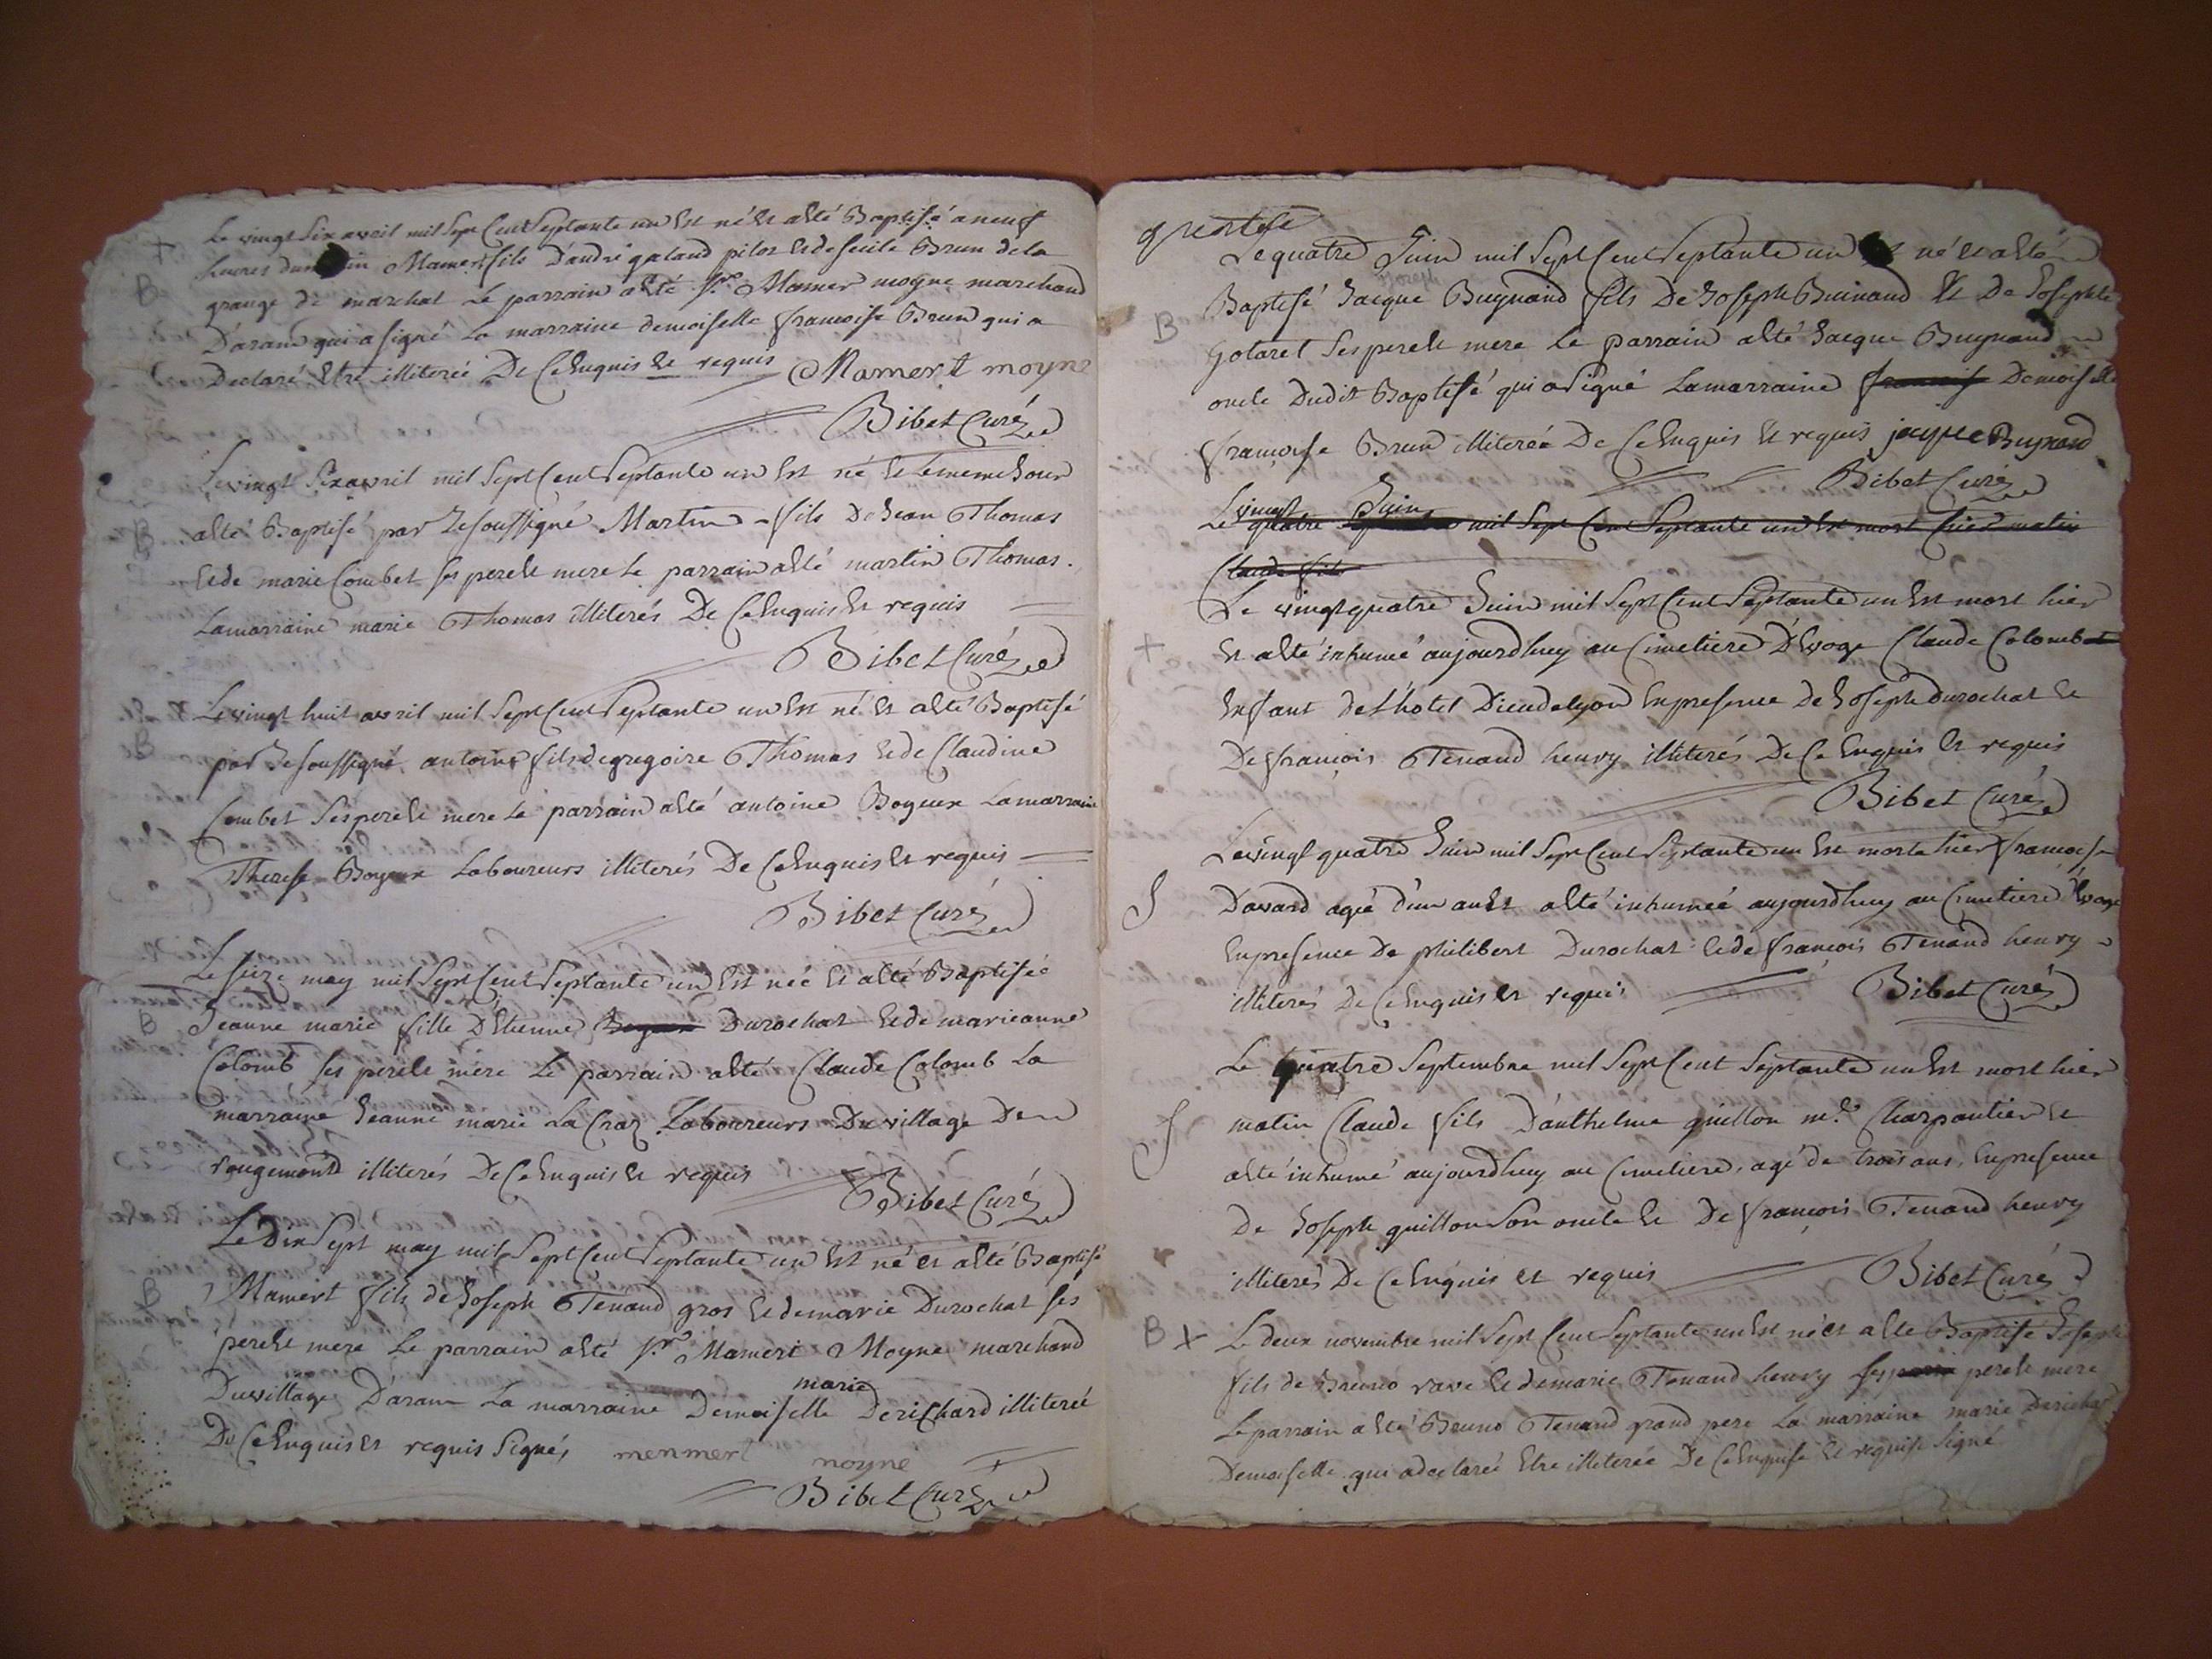 Le vingt six avril mil sept cent septante un est né et a été Baptisé a neuf
heures du Mamert fils D'andré galand piloz et de secile Brun de la
grange de marchat Le parrain a été Sr Mamer moyne marchand
D'aranc qui a signé La marraine demoiselle francoise Brun qui a
Declaré Etre illiterée De Ce Enquis Et requis Mamert moyne
Bibet Curé
Le vingt Six avril mil Sept Cent Septante un Est né Et le meme Jour
a Eté Baptisé par Je soussigné Martin fils De Jean Thomas
Et de marie Combet ses pere Et mere Le parrain a Eté martin Thomas.
La marraine marie Thomas illiterés De Ce Enquis Et requis
Bibet Curé
Le vingt huit avril mil Sept Cent Septante un Est né Et a Eté Baptisé
par Je soussigné antoine fils de gregoire Thomas Et de Claudine
Combet Ses pere Et mere Le parrain a Eté antoine Boyeux La marraine
Therese Boyeux Laboureurs illiterés De Ce Enquis Et requis
Bibet Curé
Le seize may mil Sept Cent Septante un Est née Et a Eté Baptisée
Jeanne marie fille D'Etienne Durochat Et de marieanne
Colomb ses pere Et mere Le parrain a Eté Claude Colomb La
marraine Jeanne marie La Craz Laboureurs Du village De
rougemond illiterés De Ce Enquis Et requis
Bibet Curé
Le Dix Sept may mil Sept Cent Septante un Est né Et a Eté Baptisé
Mamert fils de Joseph Tenand gros Et de marie Durochat ses
pere Et mere Le parrain a Eté Sr Mamert Moyne marchand
marie
Du village D'aranc La marraine Demoiselle Derichard illiterée
De Ce Enquis Et requis Signés menmert noyne
Bibet Curé
Le quatre Juin mil Sept Cent Septante un né Et a Eté
Joseph
Baptisé Jacque Buynand fils De Joseph Buinand Et De Josephte
Gotaret Ses pere Et mere Le parrain a Eté Jacque Buynand
oncle Dudit Baptisé qui a signé La marraine Demoiselle
francoise Brun illiterée De Ce Enquis Et requis jacque Buynand
Bibet Curé
vingt Juin
Le quatre mil Sept Cent Septante un Est mort hier matin
Claude fils
Le vingt quatre Juin mil Sept Cent Septante un Est mort hier
Et a Eté inhumé aujourdhuy au Cimetiere D'Evoge Claude Colomb
Enfant de L'hotel Dieu de lyon En presence De Joseph Durochat Et
De françois Tenand henry illiterés De Ce Enquis Et requis
Bibet Curé
Le vingt quatre Juin mil Sept Cent Septante un Est morte hier francoise
Davard agée d'un an Et a Eté inhumée aujourdhuy au Cimetiere d'Evoge
En presence De philibert Durochat Et de françois Tenand henry
illiterés De Ce Enquis Et requis Bibet Curé
Le quatre Septembre mil Sept Cent Septante un Est mort hier
matin Claude fils D'anthelme guillon me Charpantier Et
a Eté inhumé aujourdhuy au Cimetiere, agé de trois ans, En presence
De Joseph guillon Son oncle Et De françois Tenand henry
illiterés De Ce Enquis Et requis Bibet Curé
Le deux novembre mil Sept Cent Septante un Est né Et a Eté Baptisé Joseph
fils de Bruno rave Et de marie Tenand henry ses pere Et mere
Le parrain a Eté Bruno Tenand grand pere La marraine marie Derichard
Demoiselle qui a declaré Etre illiterée De Ce Enquise Et requise Signé